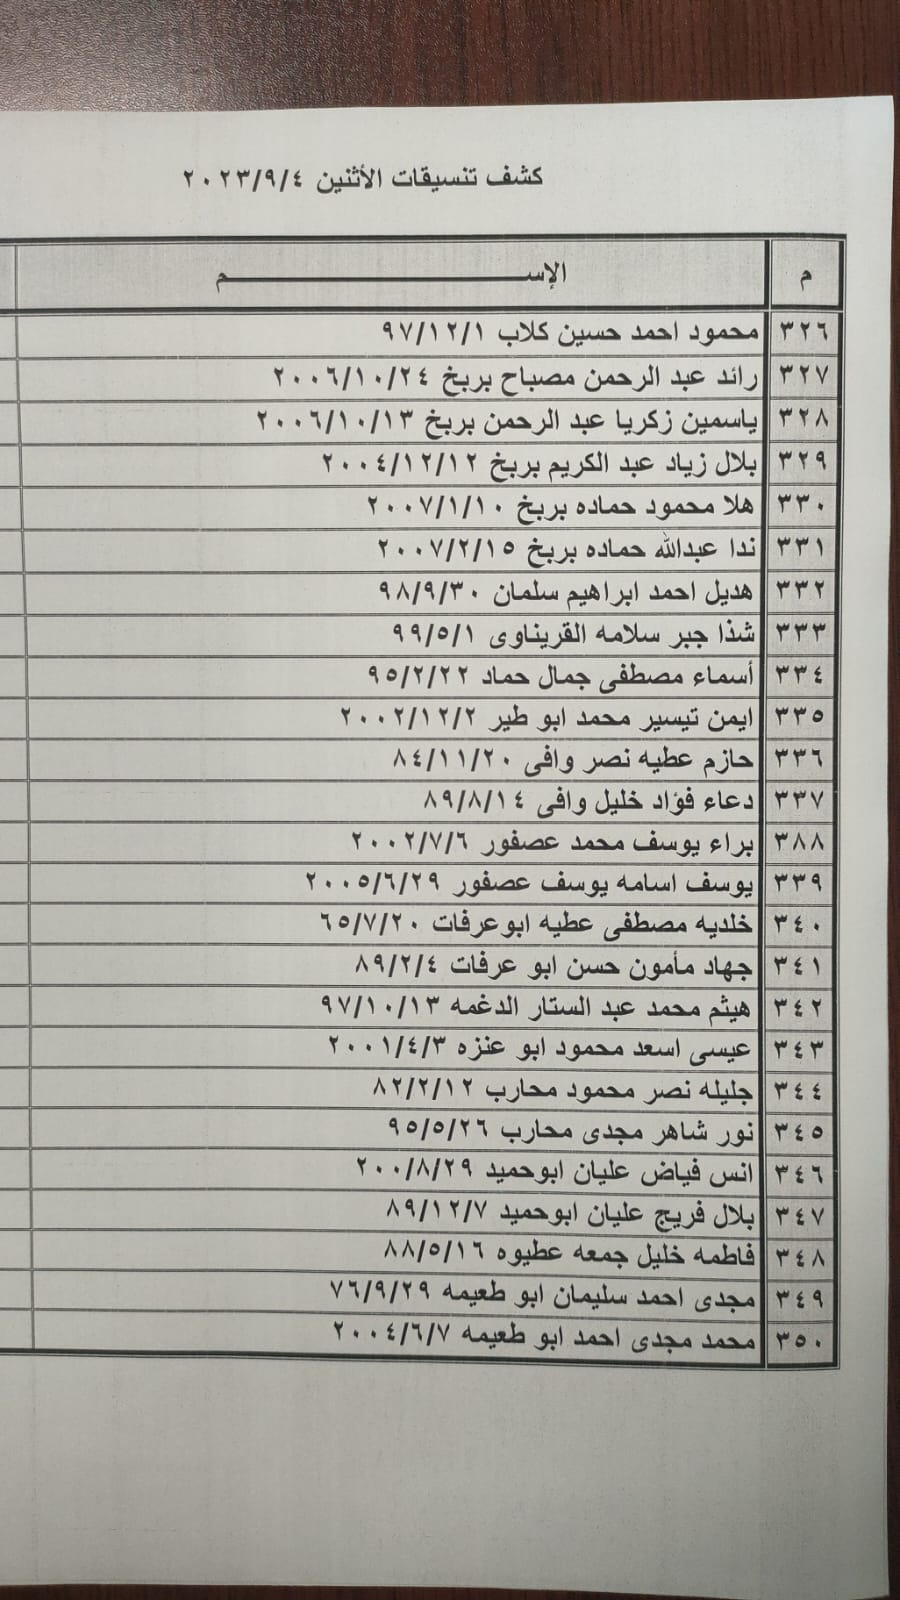 كشف تنسيقات الأثنين ٢٠٢٣/٩/٤
م الإســــــــــــم
٣٢٦ محمود احمد حسين كلاب ٩٧/١٢/١
٣٢٧ رائد عبد الرحمن مصباح بربخ ٢٠٠٦/١٠/٢٤
٣٢٨ ياسمين زكريا عبد الرحمن بربخ ٢٠٠٦/١٠/١٣
٣٢٩ بلال زياد عبد الكريم بربخ ٢٠٠٤/١٢/١٢
٣٣٠ هلا محمود حماده بربخ ٢٠٠٧/١/١٠
٣٣١ ندا عبدالله حماده بربخ ٢٠٠٧/٢/١٥
٣٣٢ هديل احمد ابراهيم سلمان ٩٨/٩/٣٠
٣٣٣ شذا جبر سلامه القريناوى ٩٩/٥/١
٣٣٤ أسماء مصطفى جمال حماد ٩٥/٢/٢٢
٣٣٥ ايمن تيسير محمد ابو طير ٢٠٠٢/١٢/٢
٣٣٦ حازم عطيه نصر وافى ٨٤/١١/٢٠
٣٣٧ دعاء فؤاد خليل وافى ٨٩/٨/١٤
٣٨٨ براء يوسف محمد عصفور ٢٠٠٢/٧/٦
٣٣٩ يوسف اسامه يوسف عصفور ٢٠٠٥/٦/٢٩
٣٤٠ خلديه مصطفى عطيه ابوعرفات ٦٥/٧/٢٠
٣٤١ جهاد مأمون حسن ابو عرفات ٨٩/٢/٤
٣٤٢ هيثم محمد عبد الستار الدغمه ٩٧/١٠/١٣
٣٤٣ عيسى اسعد محمود ابو عنزه ٢٠٠١/٤/٣
٣٤٤ جليله نصر محمود محارب ٨٢/٢/١٢
٣٤٥ نور شاهر مجدى محارب ٩٥/٥/٢٦
٣٤٦ انس فياض عليان ابوحميد ٢٠٠/٨/٢٩
٣٤٧ بلال فريج عليان ابوحميد ٨٩/١٢/٧
٣٤٨ فاطمه خليل جمعه عطيوه ٨٨/٥/١٦
٣٤٩ مجدى احمد سليمان ابو طعيمه ٧٦/٩/٢٩
٣٥٠ محمد مجدى احمد ابو طعيمه ٢٠٠٤/٦/٧